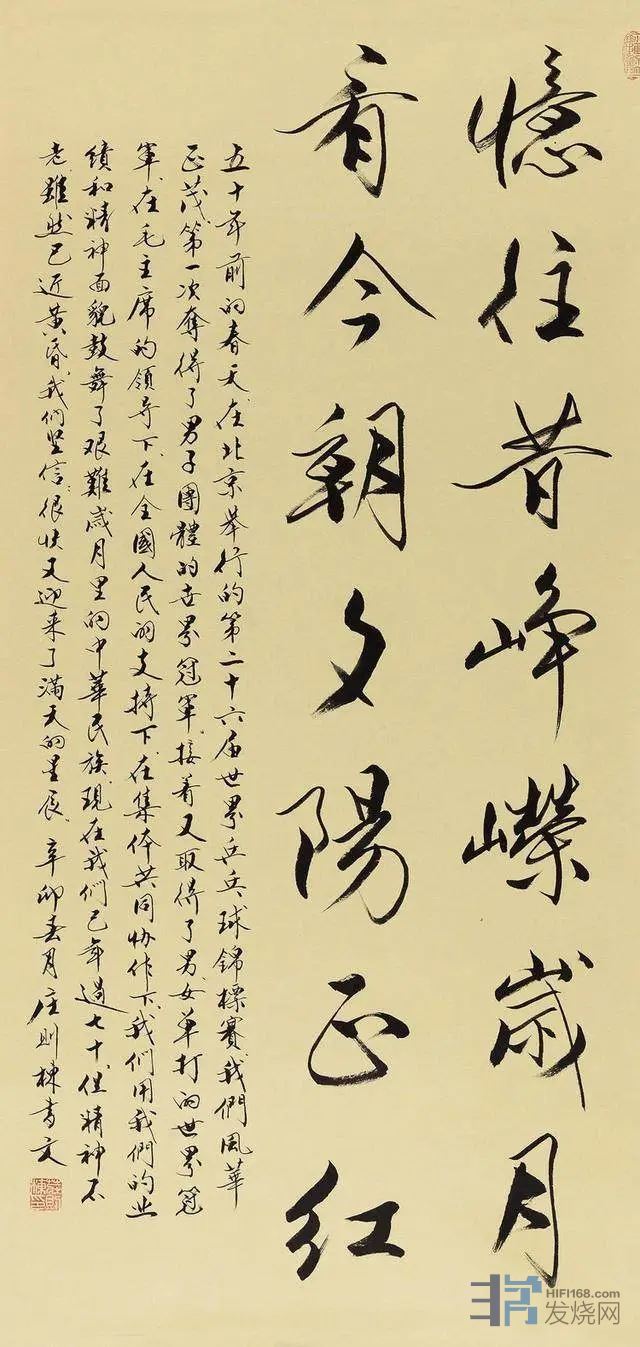 憶往昔崢嶸歲月
看今朝夕陽正红
五十年前的春天在北京举行的第二十六届世界乒乓球錦標賽我們風華
正茂第一次奪得了男子團體的世界冠軍接着又取得了男女单打的世界冠
军在毛主席的領导下在全國人民的支持下在集体共同协作下我们用我們的业
绩和精神面貌鼓舞了艰難歲月里的中華民族现在我们已年過七十但精神不
老雖然已近黄昏我们坚信很快又迎来了满天的星辰 辛卯春月庄则棟书文
HIFI168.com
发烧网